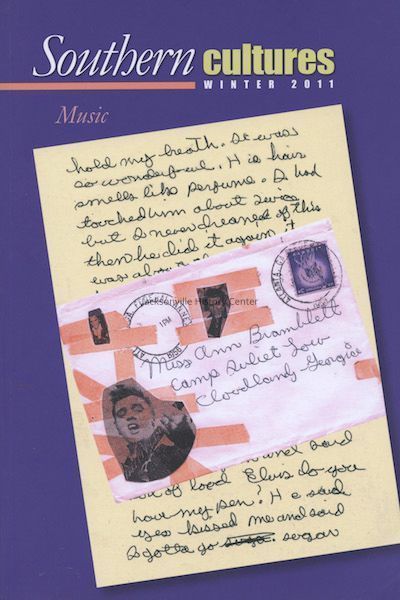 Southern cultures
WINTER 2011
Music
hold my breath. It was
so wonderful. His hair
smells like perfume. I had
touched him about twice
but I never dreamed of this
then he did it again, it
was
Jacksonville History Center
ATLANTA, GA.
1 PM
1956
Miss Ann Bramblett
Camp Juliet Low
Cloudland, Georgia
loud said
out of loud Elvis do you
have my pen? He said
yes kissed me and said
I gotta go sugar